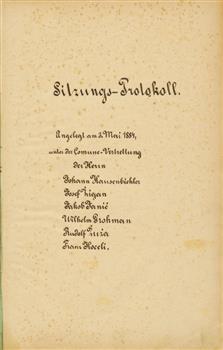 Sitzungs-Protokoll.
Angelegt am 2. Mai 1884,
unter der Comune-Vertrettung
der Herrn
Johann Hausenbichler
Josef Žigan
Jakob Janić
Wilhelm Brohman
Rudolf
Franz Roceli.